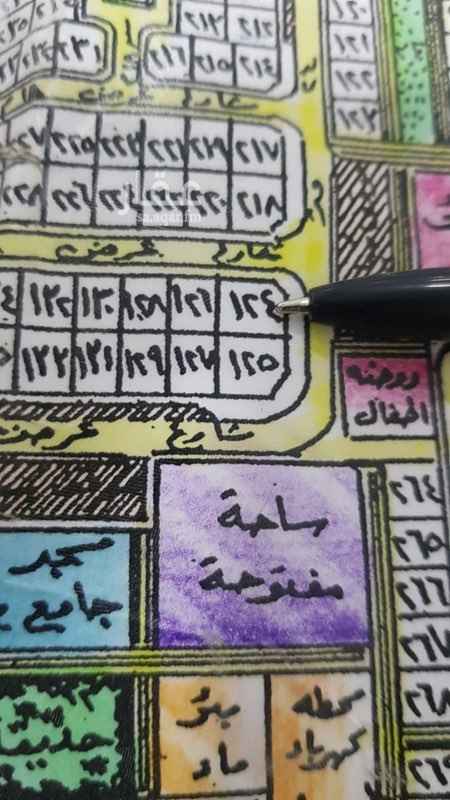 ٢١٣ ٢١٢
١٢٠
٢٣١ ٢١٦ ٢١٥ ٢١٤
١٢١
١٢٢
شارع عرض
١٢٣
٢٢٥ ٢٢٣ ٢٢١ ٢١٩ ٢١٧
٢٢٨ ٢٢٦ ٢٢٤ ٢٢٢ ٢٢٠ ٢١٨
عقار
sa.aqar.fm
شارع عرض
١٣٢ ١٣٠ ١٢٨ ١٢٦ ١٢٤
١٣٣ ١٣١ ١٢٩ ١٢٧ ١٢٥
روضه
اطفال
شارع عرض
٢٦٤
ساحة
مفتوحة
٢٦٥
مسجد
جامع
٢٦٦
٢٦٧
٢٦٨
بئر
ماء
محطه
كهرباء
حديقة
٢٦٩